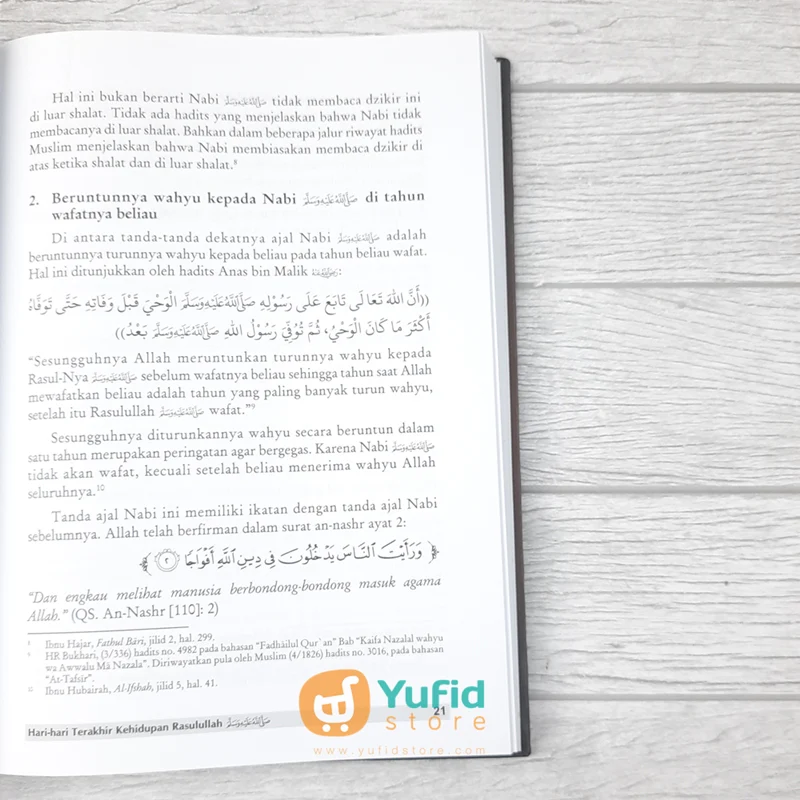 Hal ini bukan berarti Nabi ﷺ tidak membaca dzikir ini
di luar shalat. Tidak ada hadits yang menjelaskan bahwa Nabi tidak
membacanya di luar shalat. Bahkan dalam beberapa jalur riwayat hadits
Muslim menjelaskan bahwa Nabi membiasakan membaca dzikir di
atas ketika shalat dan di luar shalat.⁸
2. Beruntunnya wahyu kepada Nabi ﷺ di tahun
wafatnya beliau
Di antara tanda-tanda dekatnya ajal Nabi ﷺ adalah
beruntunnya turunnya wahyu kepada beliau pada tahun beliau wafat.
Hal ini ditunjukkan oleh hadits Anas bin Malik :
((أَنَّ اللهَ تَعَالَى تَابَعَ عَلَى رَسُولِهِ صَلَّى اللَّهُ عَلَيْهِ وَسَلَّمَ الْوَحْيَ قَبْلَ وَفَاتِهِ حَتَّى تَوَفَّاهُ
أَكْثَرَ مَا كَانَ الْوَحْيُ، ثُمَّ تُوُفِّيَ رَسُوْلُ اللهِ صَلَّى اللَّهُ عَلَيْهِ وَسَلَّمَ بَعْدُ))
“Sesungguhnya Allah meruntunkan turunnya wahyu kepada
Rasul-Nya ﷺ sebelum wafatnya beliau sehingga tahun saat Allah
mewafatkan beliau adalah tahun yang paling banyak turun wahyu,
setelah itu Rasulullah ﷺ wafat.”⁹
Sesungguhnya diturunkannya wahyu secara beruntun dalam
satu tahun merupakan peringatan agar bergegas. Karena Nabi ﷺ
tidak akan wafat, kecuali setelah beliau menerima wahyu Allah
seluruhnya.¹⁰
Tanda ajal Nabi ini memiliki ikatan dengan tanda ajal Nabi
sebelumnya. Allah telah berfirman dalam surat an-nashr ayat 2:
﴿ وَرَأَيْتَ ٱلنَّاسَ يَدْخُلُونَ فِى دِينِ ٱللَّهِ أَفْوَاجًا ٢ ﴾
“Dan engkau melihat manusia berbondong-bondong masuk agama
Allah.” (QS. An-Nashr [110]: 2)
8 Ibnu Hajar, Fathul Bâri, jilid 2, hal. 299.
9 HR Bukhari, (3/336) hadits no. 4982 pada bahasan “Fadhâilul Qur`an” Bab “Kaifa Nazalal wahyu
wa Awwalu Mâ Nazala”. Diriwayatkan pula oleh Muslim (4/1826) hadits no. 3016, pada bahasan
“At-Tafsîr”.
10 Ibnu Hubairah, Al-Ifshah, jilid 5, hal. 41.
21
Hari-hari Terakhir Kehidupan Rasulullah ﷺ
Yufid
store
www.yufidstore.com